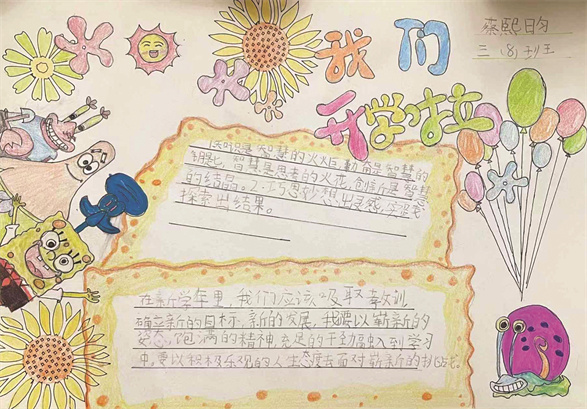 蔡熙昀
三(8)班
我们
开学啦
知识是智慧的火炬,勤奋是智慧的
钥匙,智慧是思考的火花,创新是智慧
的结晶。2.巧思妙想出灵感,实践
探索出结果。
在新学年里,我们应该吸取教训
确立新的目标,新的发展,我要以崭新的
姿态,饱满的精神,充足的干劲融入到学习
中,要以积极乐观的人生态度去面对崭新的挑战。